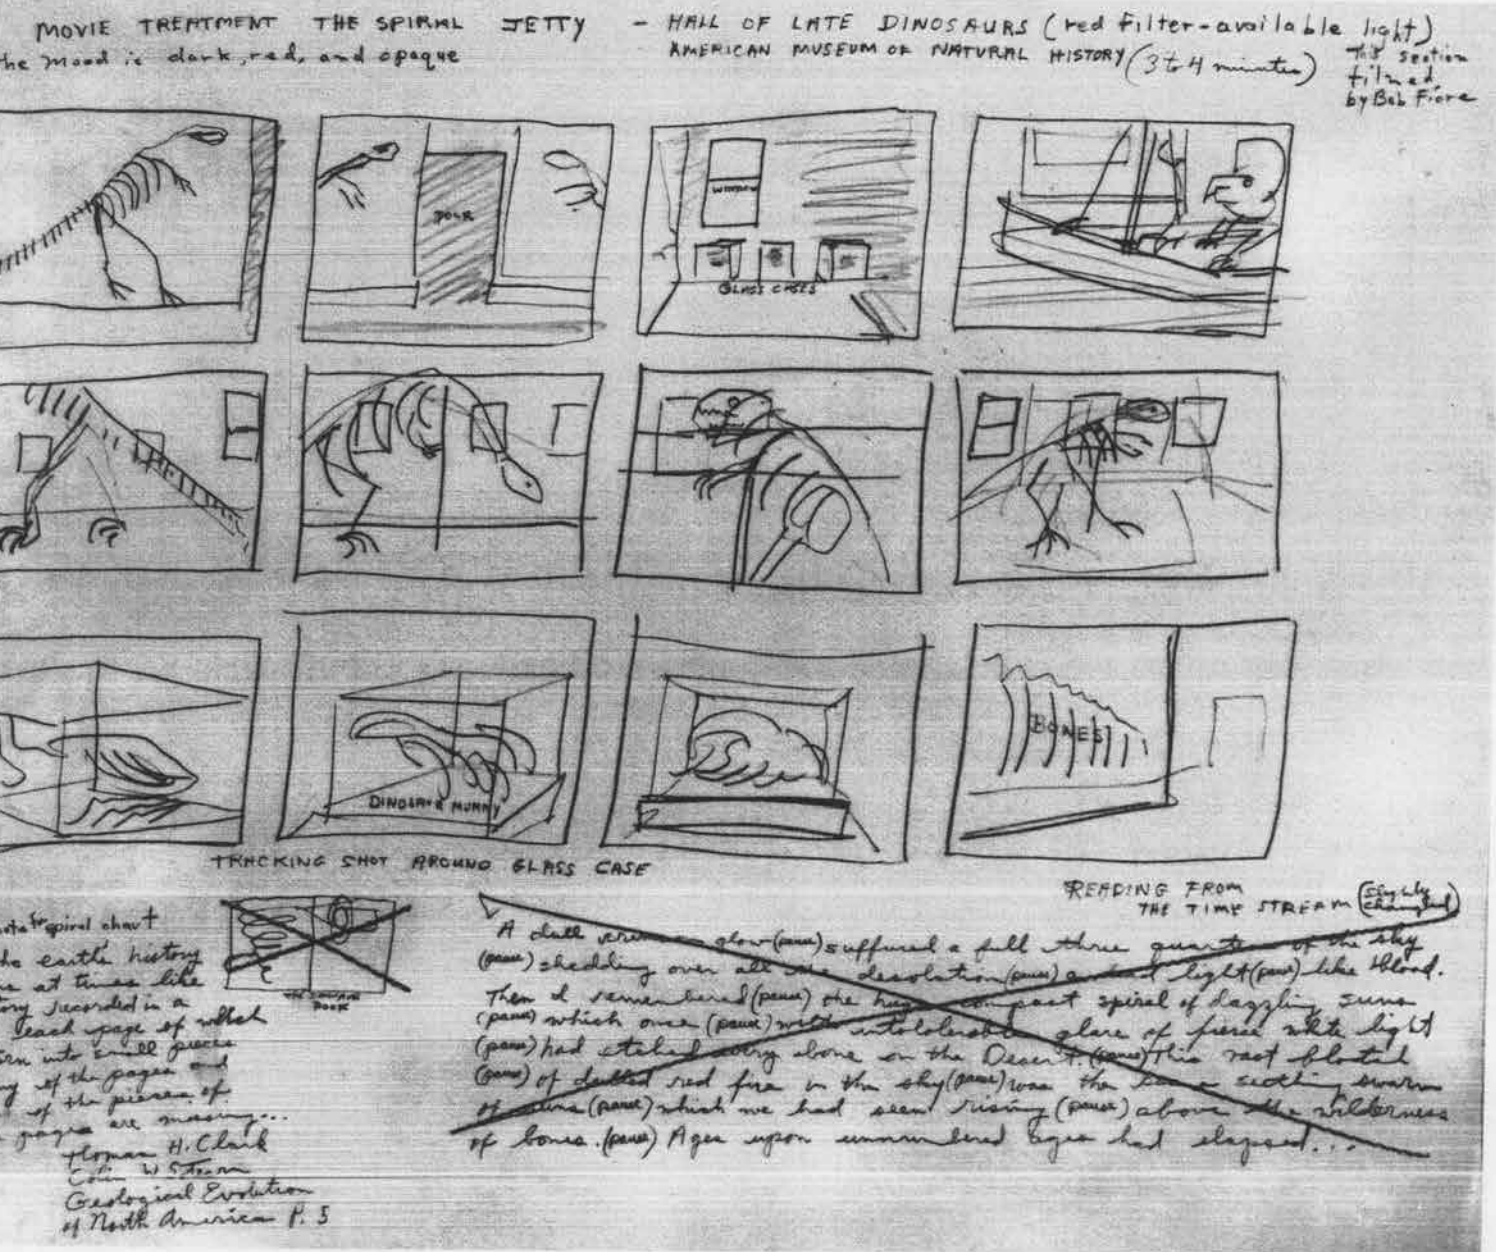 MOVIE TREATMENT THE SPIRAL JETTY - HALL OF LATE DINOSAURS (red filter-available light)
the mood is dark, red, and opaque
AMERICAN MUSEUM OF NATURAL HISTORY (3 to 4 minutes)
This section
filmed
by Bob Fiore
DOOR
WINDOW
GLASS CASES
DINOSAUR MUMMY
BONES
TRACKING SHOT AROUND GLASS CASE
READING FROM
THE TIME STREAM (slightly
changed)
for spiral chart
the earth's history
at times like
recorded in a
each page of which
torn into small pieces
of the pages and
of the pieces of
pages are missing...
Thomas H. Clark
Colin W Stearn
Geological Evolution
of North America P. 5
BOOK
A dull glow (pause) suffused a full three quarters of the sky
(pause) shedding over all the desolation (pause) a light (pause) like blood.
Then I remembered (pause) the huge compact spiral of dazzling suns
(pause) which once (pause) with intolerable glare of fierce white light
(pause) had etched every bone on the Desert. (pause) This vast bloated
(pause) of dulled red fire in the sky (pause) was the seething swarm
of suns (pause) which we had seen rising (pause) above the wilderness
of bones. (pause) Ages upon unnumbered ages had elapsed...